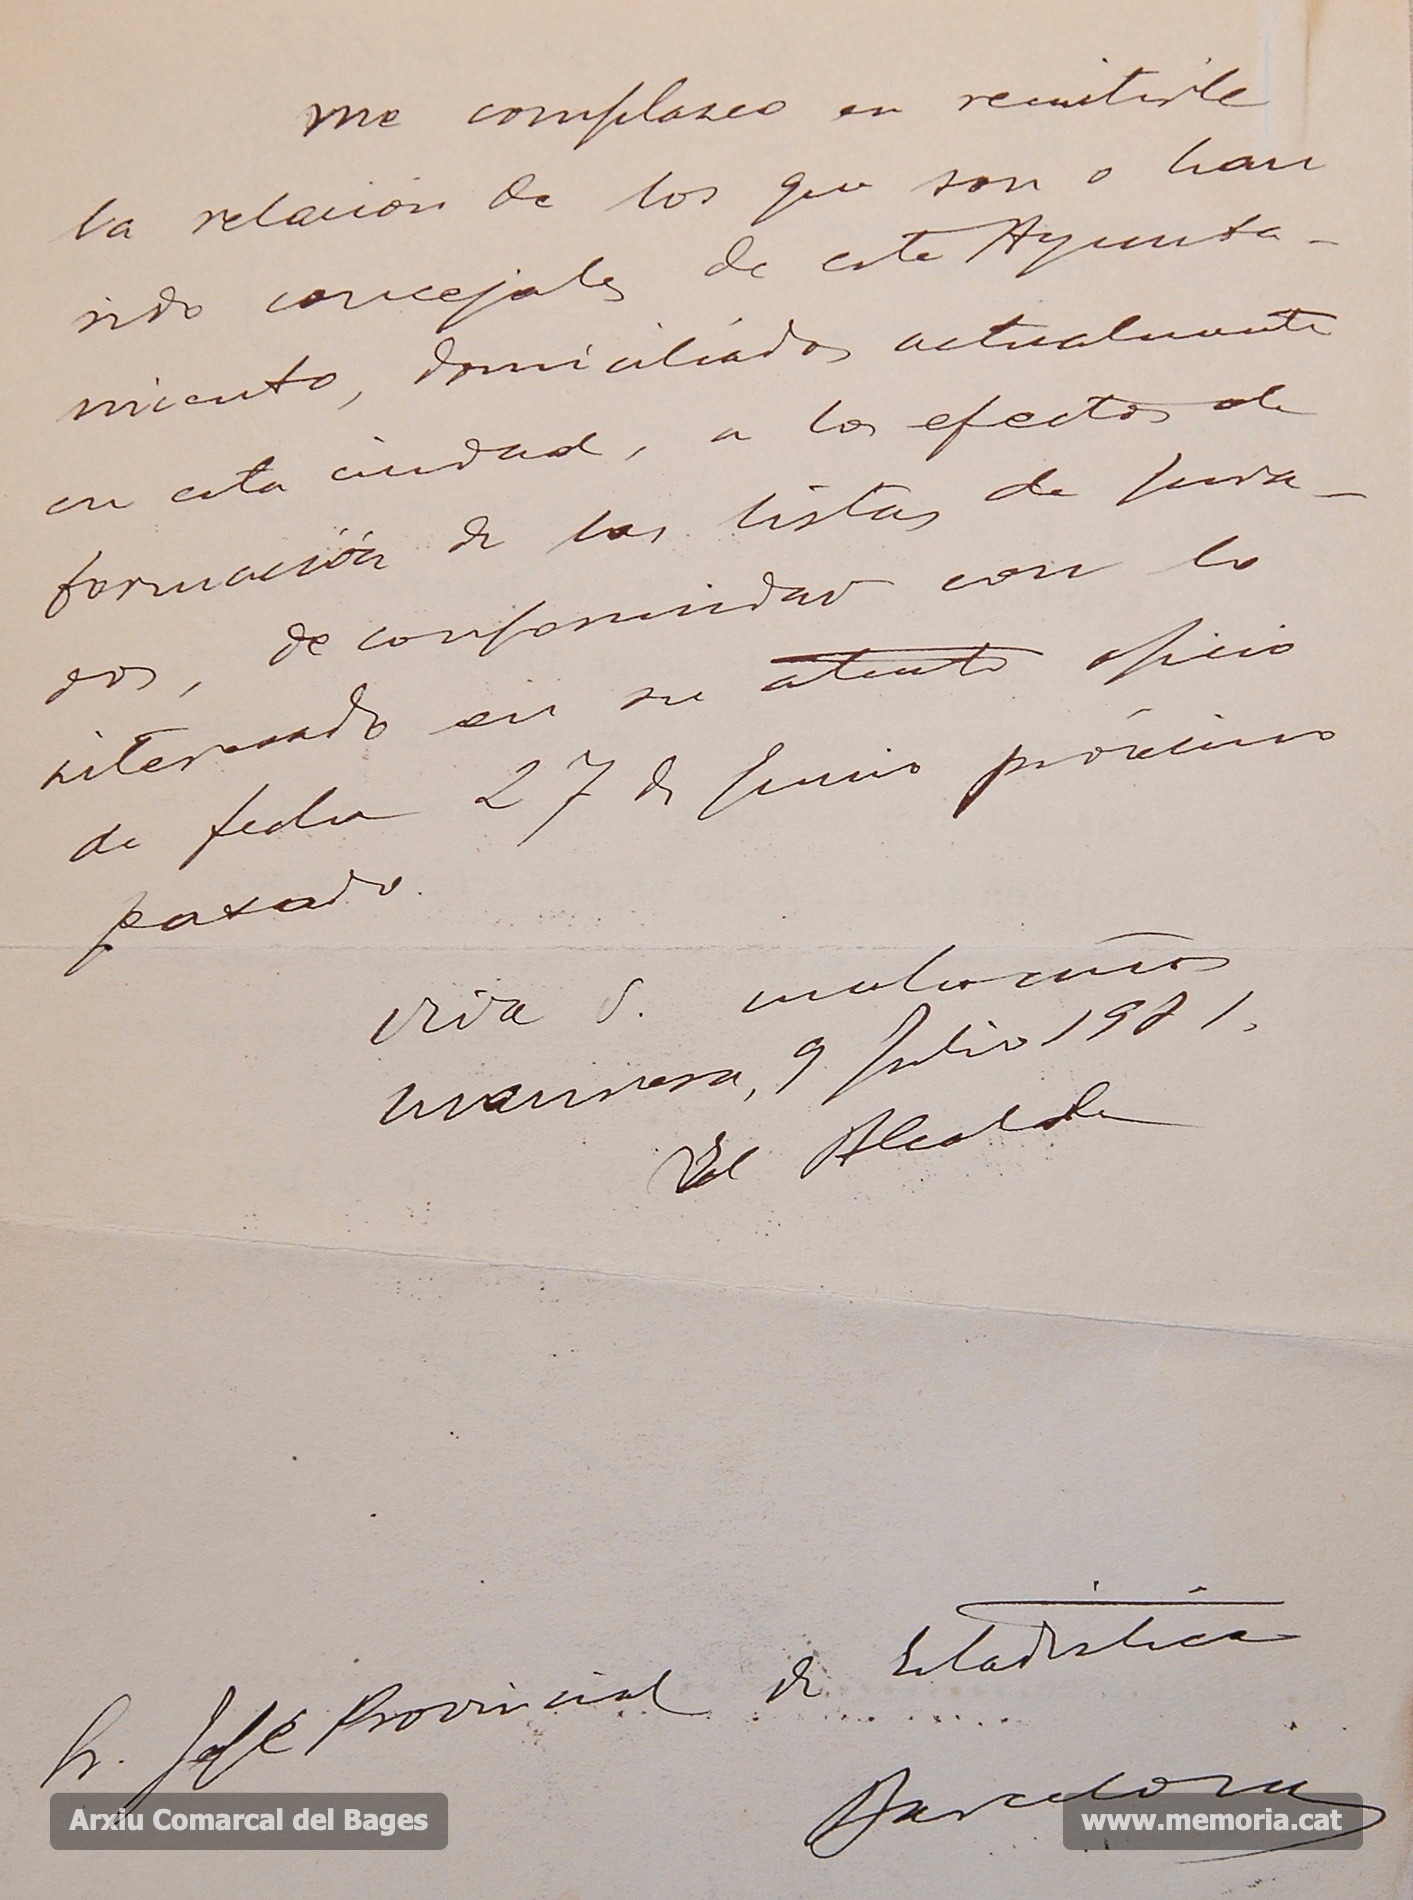 Me complazco en remitirle
la relación de los que son o han
sido concejales de este Ayunta-
miento, domiciliados actualmente
en esta ciudad, a los efectos de
formación de las listas de Jura-
dos, de conformidad con lo
interesado en su atento oficio
de fecha 27 de Junio próximo
pasado.
Viva S. muchos años
Manresa, 9 Julio 1931.
El Alcalde
Sr. Jefe Provincial de Estadística
Barcelona
Arxiu Comarcal del Bages
www.memoria.cat